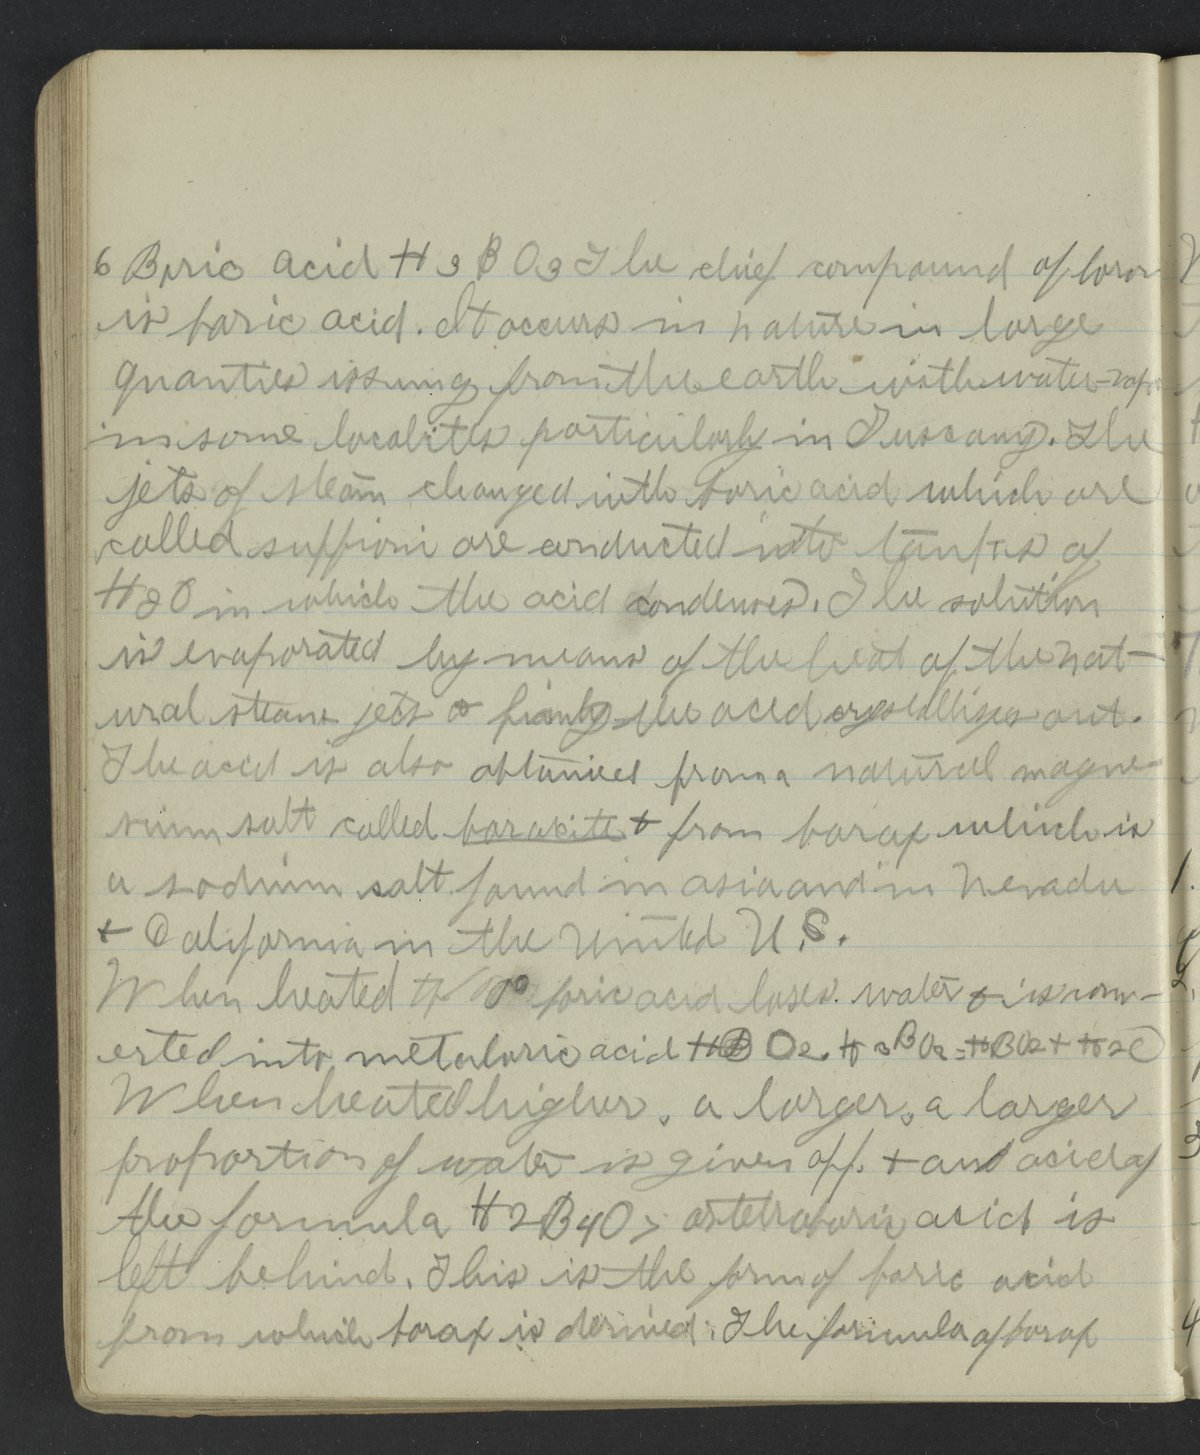 6 Boric acid H3BO3 The chief compound of boron
is boric acid. It occurs in nature in large
quanties issuing from the earth with water-vapor
in some localites particularly in Tuscany. The
jets of steam changed with boric acid which are
called suffioni are conducted into tanks of
H2O in which the acid condenses. The solution
is evaporated by means of the heat of the nat-
ural steam jets & finaly the acid crystallizes out.
The acid is also obtained from a natural magne-
sium salt called borakite & from borax which is
a sodium salt found in asia and in Nevada
& California in the United U.S.
When heated to boric acid loses water & is conv-
erted into metaboric acid HBO2. H3BO3=HBO2+H2O
When heated higher, a larger, a larger
proportion of water is given off. & an acid of
the formula H2B4O7 or tetraboric acid is
left behind. This is the form of boric acid
from which borax is derived. The formula of borax
1.
2.
3
4